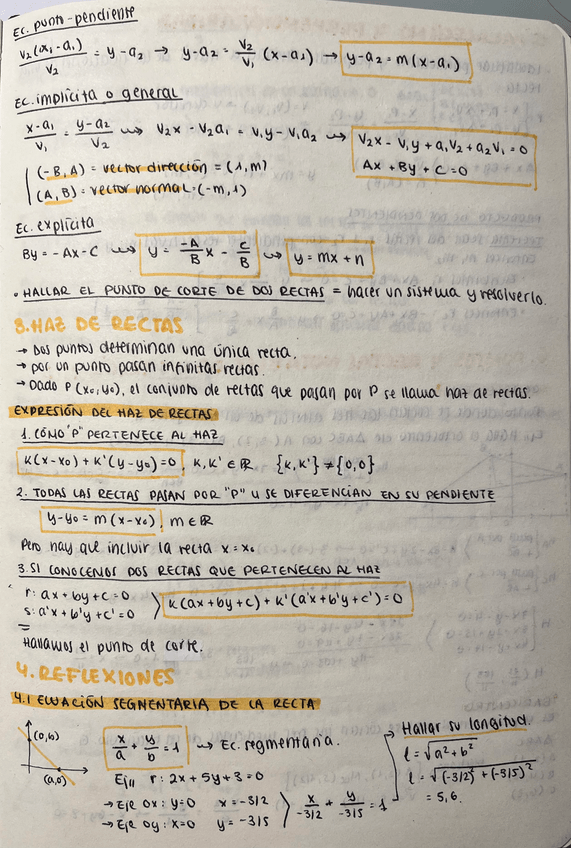 Ec. punto-pendiente
v₂(x₁-a₁)/v₂ = y-a₂ → y-a₂ = v₂/v₁ (x-a₁) → y-a₂=m(x-a₁)
Ec. implícita o general
x-a₁/v₁ = y-a₂/v₂ ⇝ v₂x - v₂a₁ = v₁y - v₁a₂ ⇝ v₂x - v₁y + a₁v₂ + a₂v₁ = 0
Ax + By + C = 0
(-B, A) = vector dirección = (1, m)
(A, B) = vector normal = (-m, 1)
Ec. explícita
By = -Ax - C ⇝ y = -A/B x - C/B ⇝ y = mx + n
• HALLAR EL PUNTO DE CORTE DE DOS RECTAS = hacer un sistema y resolverlo.
3. HAZ DE RECTAS
→ Dos puntos determinan una única recta.
→ por un punto pasan infinitas rectas.
→ Dado P (x₀, y₀), el conjunto de rectas que pasan por P se llama haz de rectas.
EXPRESIÓN DEL HAZ DE RECTAS
1. CÓMO "P" PERTENECE AL HAZ
k(x-x₀) + k'(y-y₀) = 0, k, k' ∈ ℝ {k, k'} ≠ {0,0}
2. TODAS LAS RECTAS PASAN POR "P" Y SE DIFERENCIAN EN SU PENDIENTE
y-y₀ = m(x-x₀), m ∈ ℝ
Pero hay que incluir la recta x = x₀
3. SI CONOCEMOS DOS RECTAS QUE PERTENECEN AL HAZ
r: ax + by + c = 0
s: a'x + b'y + c' = 0 〉 k(ax+by+c) + k'(a'x+b'y+c') = 0
Hallamos el punto de corte.
4. REFLEXIONES
4.1 ECUACIÓN SEGMENTARIA DE LA RECTA
(0,b)
(a,0)
x/a + y/b = 1 → Ec. segmentaria.
Ej// r: 2x + 5y + 3 = 0
→ Eje OX: y=0 x = -3/2
→ Eje OY: x=0 y = -3/5 〉 x/-3/2 + y/-3/5 = 1
→ Hallar su longitud.
l = √a² + b²
l = √(-3/2)² + (-3/5)²
= 5,6.